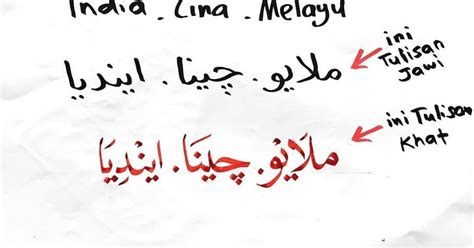 India . Cina . Melayu
ملايو . چينا . اينديا
ini
Tulisan
Jawi
ملَايُو . چِينَا . ايندِيَا
ini Tulisan
Khat